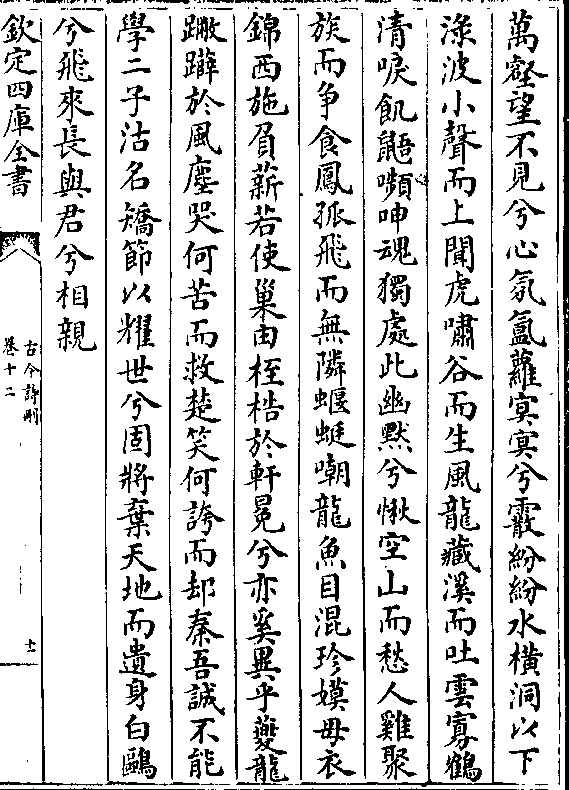 萬壑望不見兮心氛氳蘿㝠㝠兮霰紛紛水橫洞以下
淥波小聲而上聞虎嘯谷而生風龍藏溪而吐雲寡鶴
清唳飢鼯嚬呻魂獨處此幽黙兮愀空山而愁人雞聚
族而爭食鳳孤飛而無隣蝘蜓嘲龍魚目混珍嫫母衣
錦西施負薪若使巢由桎梏於軒冕兮亦奚異乎夔龍
蹩躠於風塵哭何苦而救楚笑何誇而却秦吾誠不能
學二子沽名矯節以耀世兮固將棄天地而遺身白鷗
兮飛來長與君兮相親
欽定四庫全書
古今詩刪
卷十二
十一